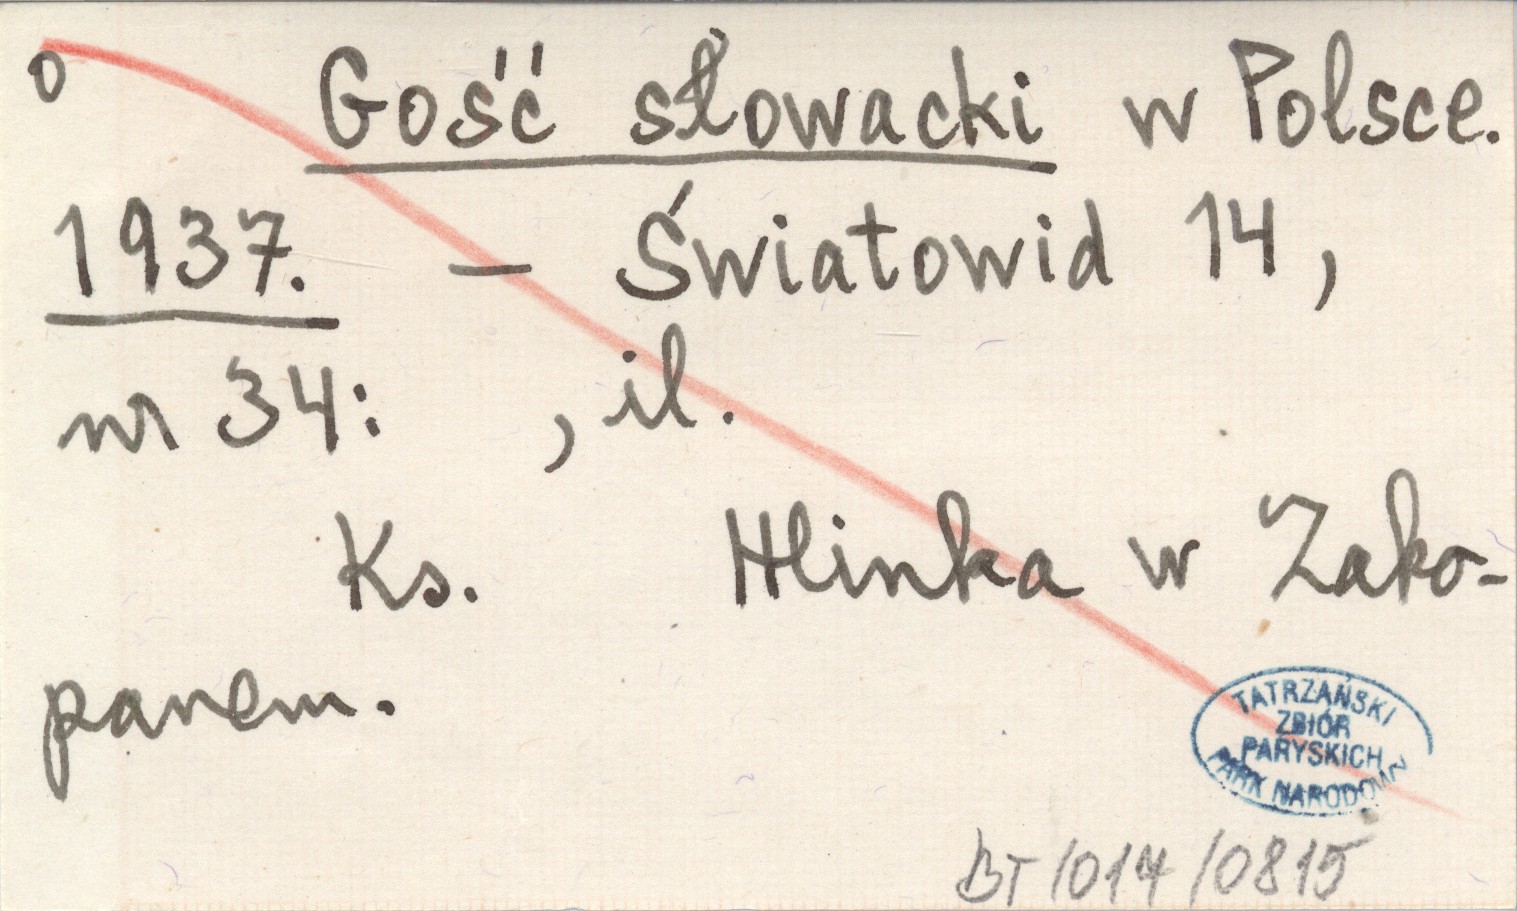 o Gość słowacki w Polsce.
1937. – Światowid 14,
nr 34: , il.
Ks. Hlinka w Zako-
panem.
TATRZAŃSKI
ZBIÓR
PARYSKICH
PARK NARODOWY
BT/014/0815